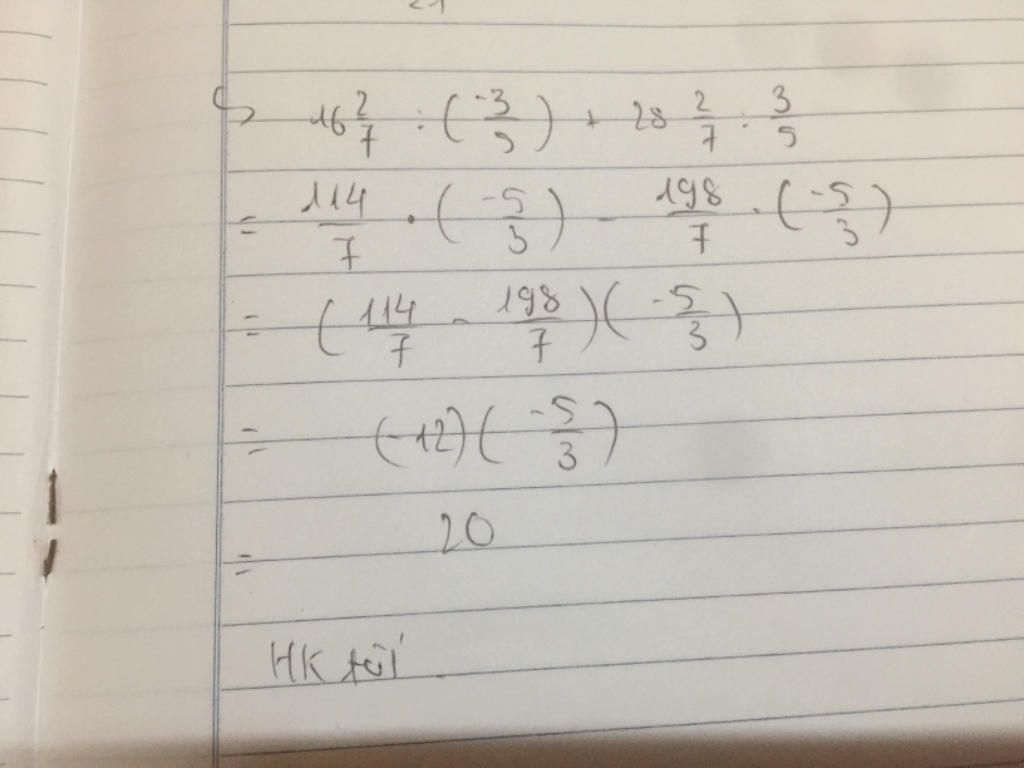 21
c) 16 2/7 : (-3/5) + 28 2/7 : 3/5
= 114/7 . (-5/3) - 198/7 . (-5/3)
= (114/7 - 198/7)(-5/3)
= (-12)(-5/3)
= 20
HK tới